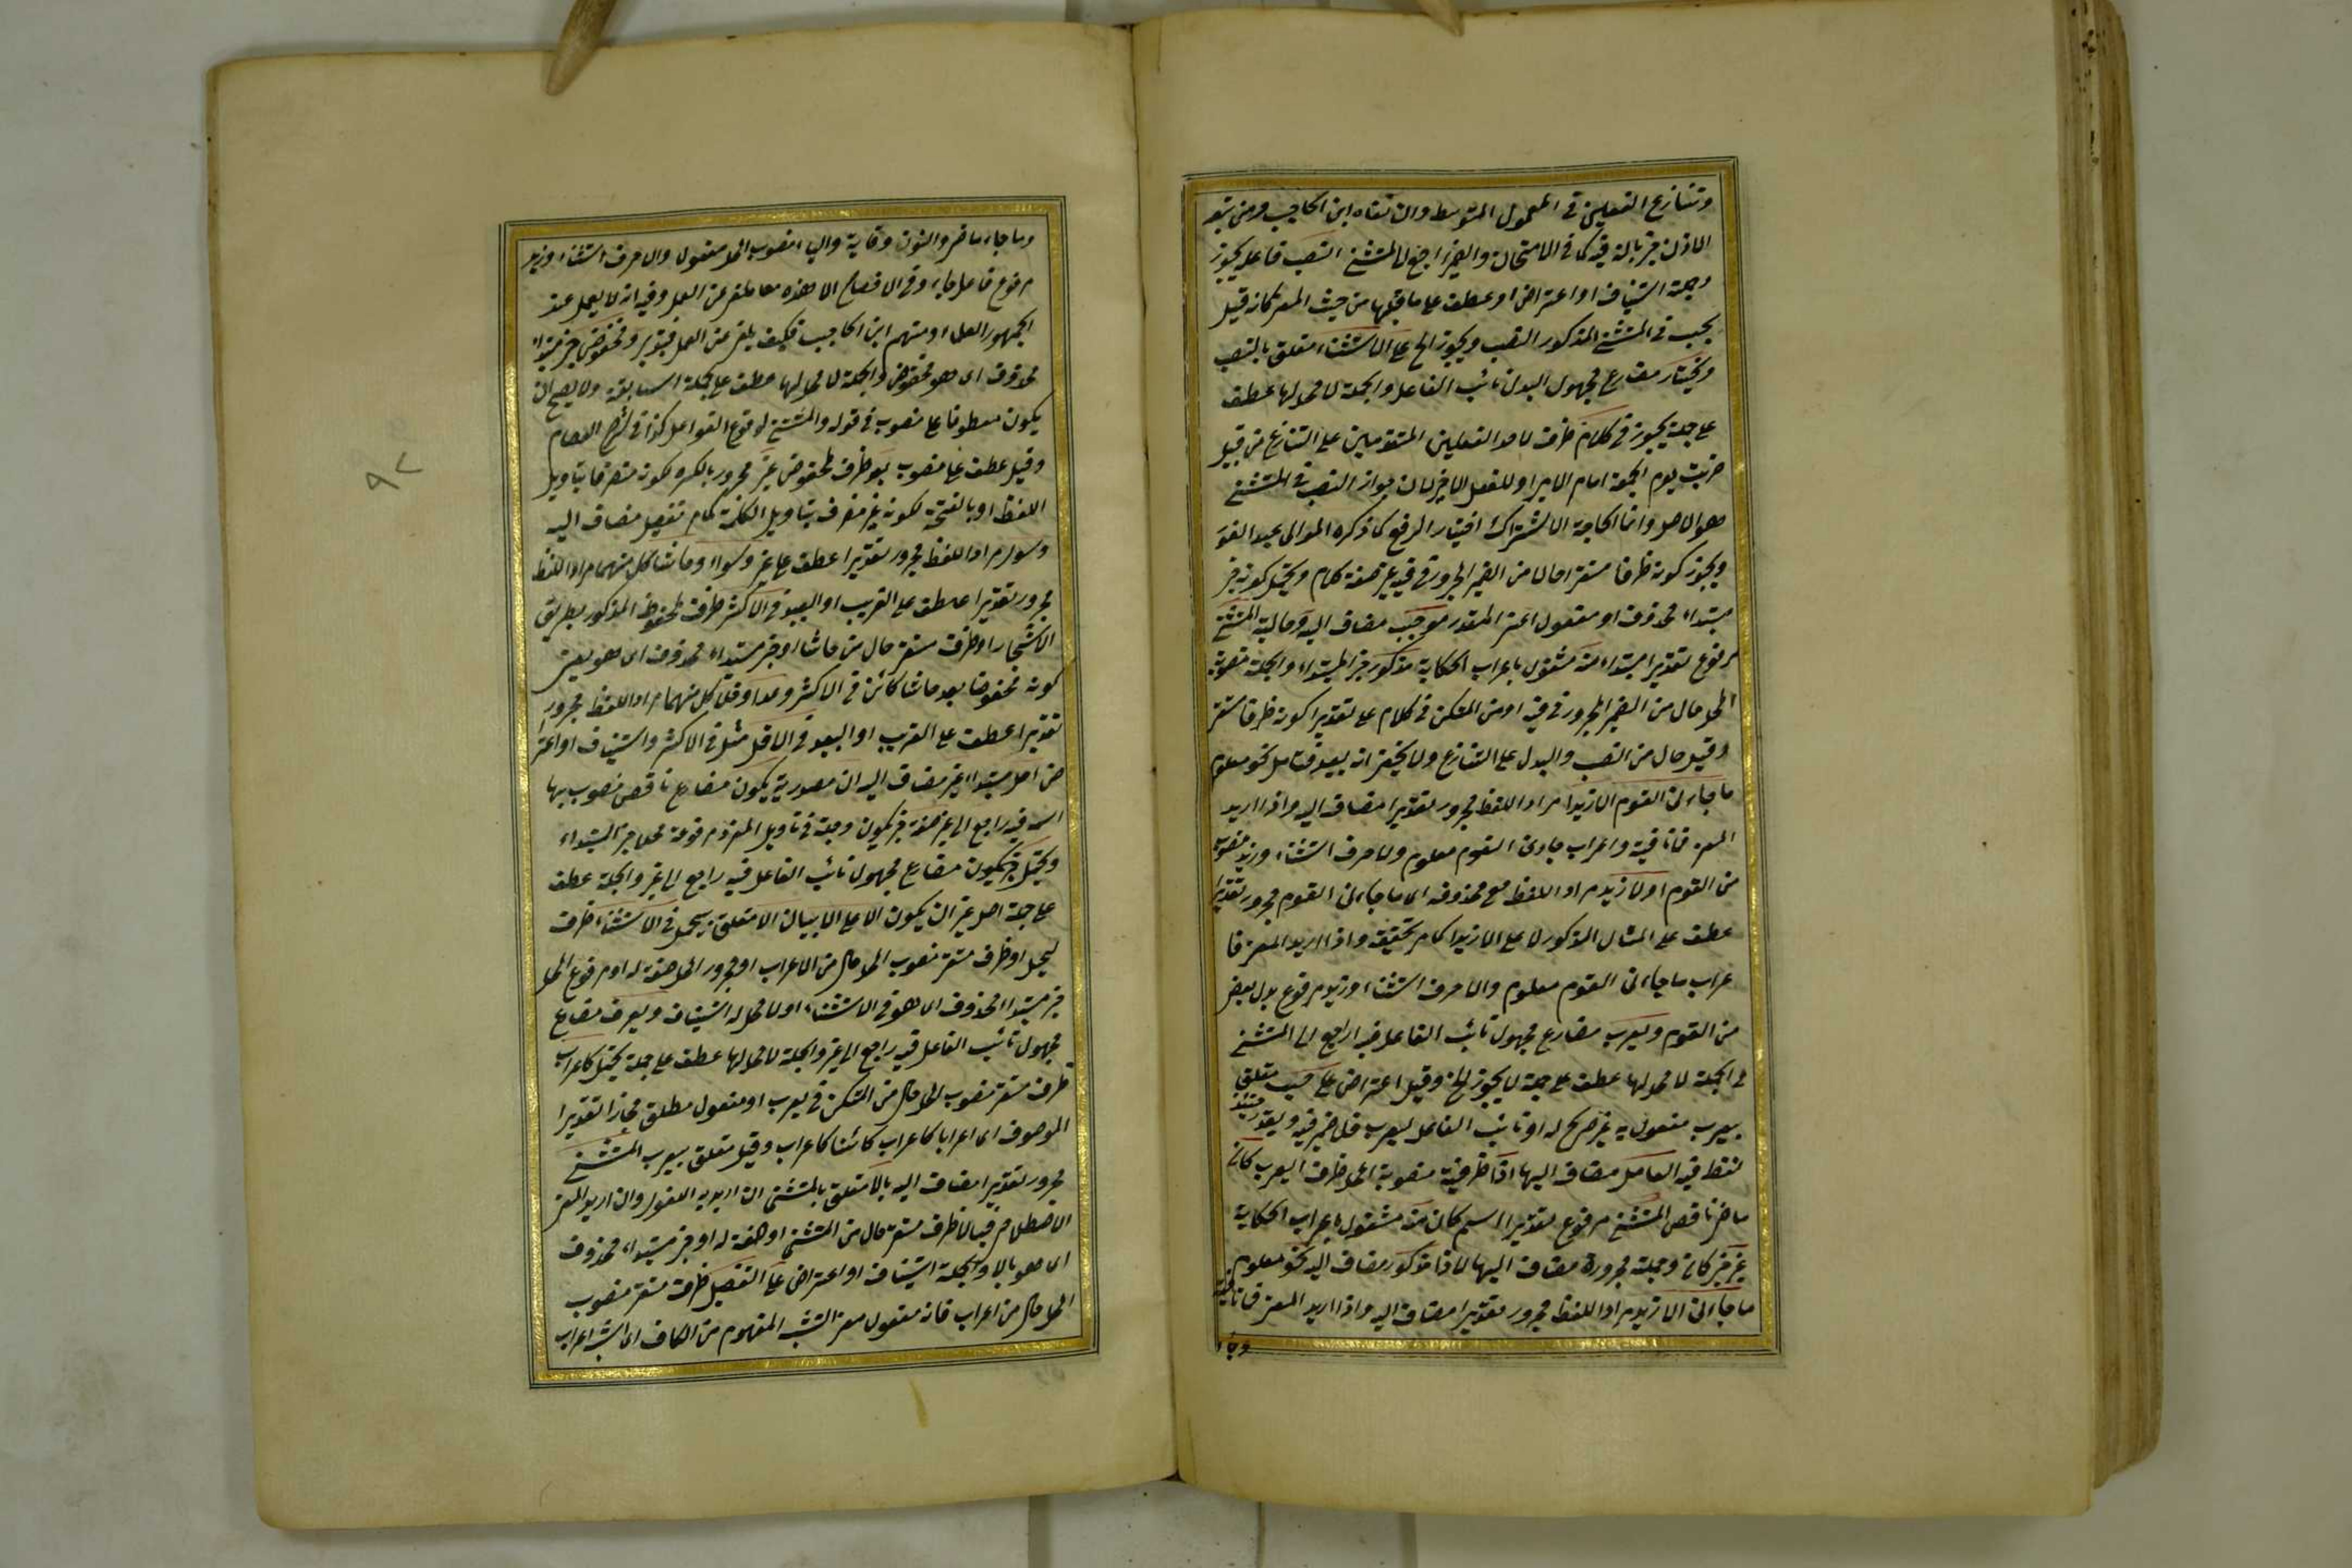 وتنازع الفعلين في المعمول المتوسط وان نفاه ابن الحاجب ومن تبعه
المستثنى النصب فاعل يجوز
وجملة استيناف او اعتراض او عطف على ما قبلها من حيث المعنى كانه قيل
يجب في المستثنى المذكور النصب ويجوز الخ على الاستثناء متعلق بالنصب
ويختار مضارع مجهول البدل نائب الفاعل والجملة لا محل لها عطف
على جملة يجوز في كلام ظرف لاحد الفعلين المتقدمين على التنازع من قبيل
ضربت يوم الجمعة امام الامير او للفعل الاخير لان جواز النصب في المستثنى
هو الاصل وانما الحاجة الى اشتراك اختيار الرفع كما ذكره المولى
ويجوز كونه ظرفا مستقرا حالا من الضمير المجرور في فيه غير صفة كلام ويحتمل كونه خبر
مبتداء محذوف او مفعول اعنى المقدر موجب مضاف اليه و المستثنى
مرفوع تقديرا مبتداء منه مشغول باعراب الحكاية مذكور خبر المبتداء والجملة منصوبة
المحل حال من الضمير المجرور في فيه او من المستكن في كلام على تقدير كونه ظرفا مستقر
وقيل حال من النصب والبدل على التنازع ولا يخفى انه بعيد فتامل نحو معلوم
ما جاءنى القوم الا زيدا مراد اللفظ مجرور تقديرا مضاف اليه واذا اريد
المعنى فما نافية واعراب جاءنى القوم معلوم والا حرف استثناء وزيدا منصوب
من القوم او الا زيد مراد اللفظ مع محذوفه اى ما جاءنى القوم مجرور تقديرا
عطف على المثال المذكور لا على الا زيدا كما مر تحقيقه واذا اريد المعنى فا
عراب ما جاءنى القوم معلوم والا حرف استثناء وزيد مرفوع بدل بعض
من القوم ويعرب مضارع مجهول نائب الفاعل فيه راجع الى المستثنى
والجملة لا محل لها عطف على جملة لا يجوز الخ وقيل اعتراض على حسب متعلق
بيعرب مفعول به غير صريح له او نائب الفاعل ليعرب فلا ضمير فيه ويقدر حينئذ
لفظ فيه العامل مضاف اليها اذا ظرفية منصوبة المحل ظرف ليعرب كان
ماض ناقص المستثنى مرفوع تقديرا اسم كان منه مشغول باعراب الحكاية
غير خبر كان وجملته مجرورة مضاف اليها لاذا مذكور مضاف اليه نحو معلوم
ما جاءنى الا زيد مراد اللفظ مجرور تقديرا مضاف اليه واذا اريد المعنى فما نافية
وجاء
وما جاء ماض والنون وقاية والياء منصوب المحل مفعوله والا حرف استثناء وزيد
مرفوع فاعل جاء وفي الا هذه من العمل وفيه انه لا يعمل عند
الجمهور العلماء ومنهم ابن الحاجب فكيف يلغى عن العمل فتدبر ومخفوض خبر مبتداء
محذوف اى هو مخفوض والجملة لا محل لها عطف على الجملة السابقة ولا يصح ان
يكون معطوفا على منصوب في قوله والمستثنى لوقوع الفواصل كذا في شرح العصام
وقيل عطف على منصوب بعد ظرف لمخفوض غير مجرور بالكسرة لكونه منصرفا بتاويل
اللفظ او بالفتحة لكونه غير منصرف بتاويل الكلمة كما مر تفصيله مضاف اليه
وسوى مراد اللفظ مجرور تقديرا عطف على غير وسواء وحاشا كل منهما مراد اللفظ
مجرور تقديرا عطف على القريب او البعيد في الاكثر ظرف لمخفوض المذكور بطريق
او ظرف مستقر حال من حاشا او خبر مبتداء محذوف اى هو يعنى
كونه مخفوضا بعد حاشا كائن في الاكثر وعدا وخلا كل منهما مراد اللفظ مجرور
تقديرا عطف على القريب او البعيد في الاقل مثل في الاكثر واستيناف او اعترا
ض اصل مبتداء غير مضاف اليه ان مصدرية يكون مضارع ناقص منصوب بها
اسمه فيه راجع الى غير صفة خبر يكون وجملته في تاويل المفرد مرفوعة محلا خبر المبتداء
مضارع مجهول نائب الفاعل فيه راجع الى غير والجملة عطف
على جملة اصل غير ان يكون الا على الا متعلق بيحمل في الاستثناء ظرف
ليحمل او ظرف مستقر منصوب المحل حال من الاعراب او مجرور المحل صفة له او مرفوع المحل
خبر مبتداء محذوف اى هو في الاستثناء او لا محل له استيناف ويعرب مضارع
مجهول نائب الفاعل فيه راجع الى غير والجملة لا محل لها عطف على جملة يحمل كاعراب
ظرف مستقر منصوب المحل حال من المستكن في يعرب او مفعول مطلق مجازا تقديرا
لموصوف اى اعرابا كاعراب كائنا كاعراب وقيل متعلق بيعرب المستثنى
مجرور تقديرا مضاف اليه بالا متعلق بالمستثنى ان اريد به اللغوى وان اريد المعنى
الاصطلاحى فبالا ظرف مستقر حال من المستثنى او صفة له او خبر مبتداء محذوف
اى هو بالا والجملة استيناف او اعتراض على التفصيل ظرف مستقر منصوب
المحل حال من اعراب فانه مفعول معنى التشبيه المفهوم من الكاف اى اشبه اعراب
٩٢